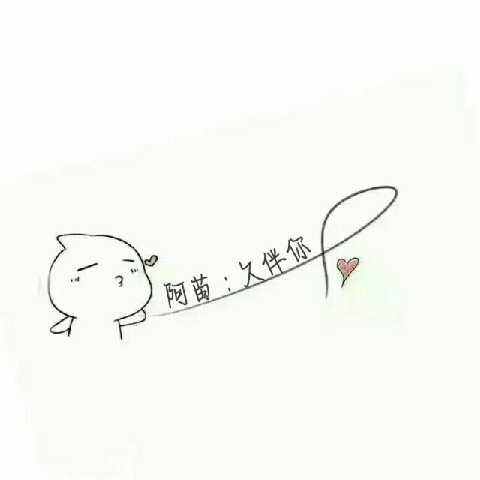 阿苗：久伴你